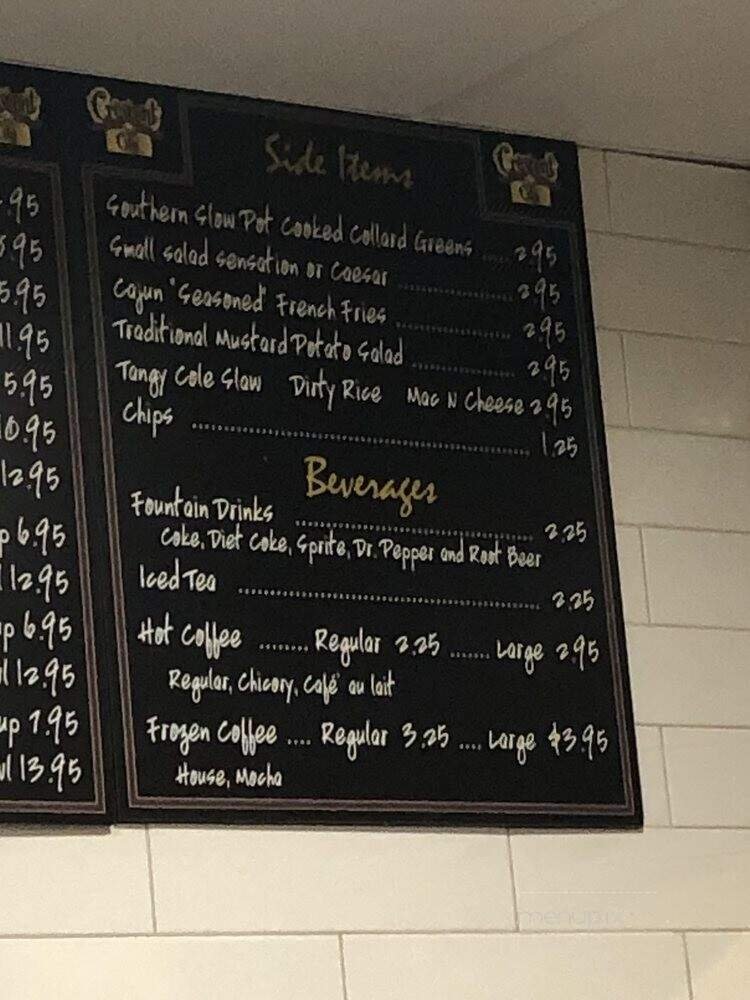 Crescent
City
Crescent
City
Side Items
Southern Slow Pot Cooked Collard Greens .... 2.95
Small salad sensation or Caesar .................... 2.95
Cajun "Seasoned" French Fries .................... 2.95
Traditional Mustard Potato Salad .................. 2.95
Tangy Cole Slaw Dirty Rice Mac N Cheese 2.95
Chips ............................................................ 1.25
Beverages
Fountain Drinks .......................................... 2.25
Coke, Diet Coke, Sprite, Dr. Pepper and Root Beer
Iced Tea ...................................................... 2.25
Hot Coffee ........ Regular 2.25 ....... Large 2.95
Regular, Chicory, Café au lait
Frozen Coffee .... Regular 3.25 .... Large $3.95
House, Mocha
.95
.95
5.95
11.95
5.95
10.95
12.95
p 6.95
12.95
up 6.95
wl 12.95
up 7.95
wl 13.95
menupix